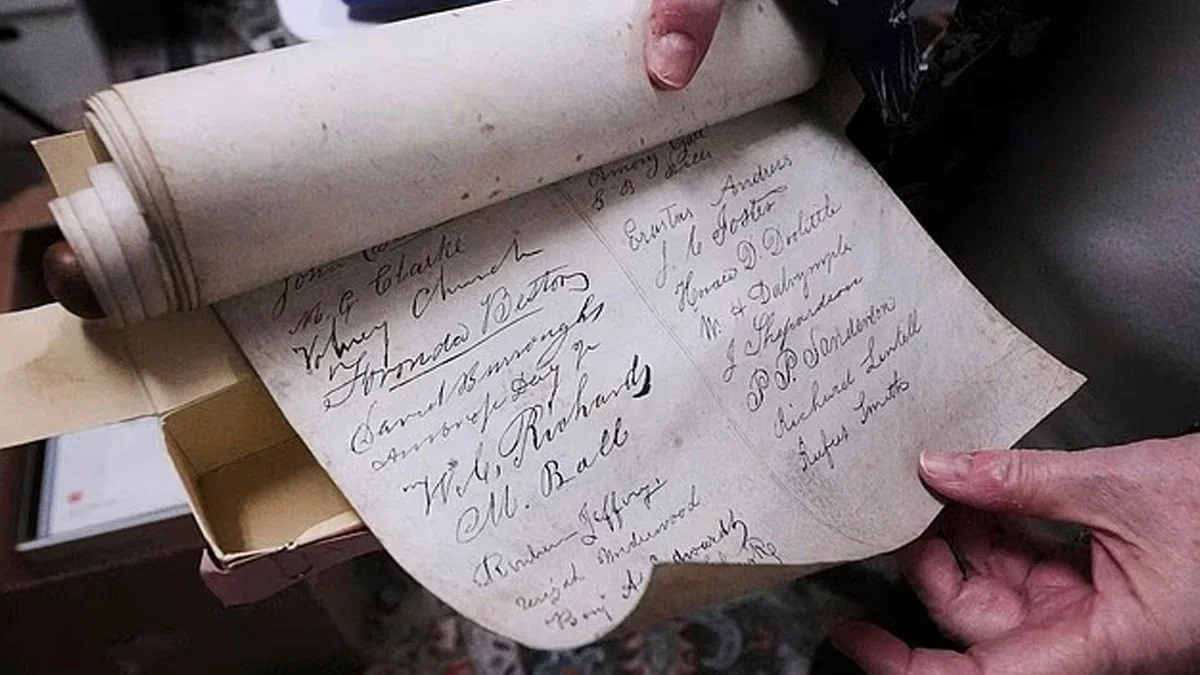 M. G. Clarke
Volney Church
Horonda Bestor
David Burroughs
Ambrose Day Jr
W. C. Richards
M. Ball
Reuben Jeffreys
Underwood
Benj A Edwards
Amory Gale
G B
Erastus Andrews
J. C Foster
Horace D. Doolittle
W. H Dalrymple
J Shepardson
P. P. Sanderson
Richard Lentell
Rufus Smith